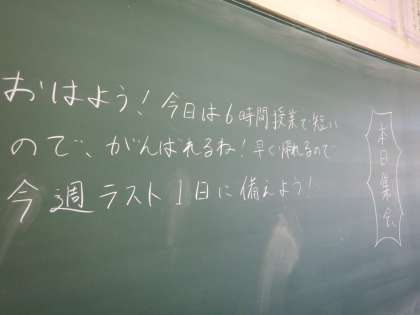 おはよう！今日は6時間授業で短い
ので、がんばれるね！早く帰れるので
今週ラスト1日に備えよう！
本日集会